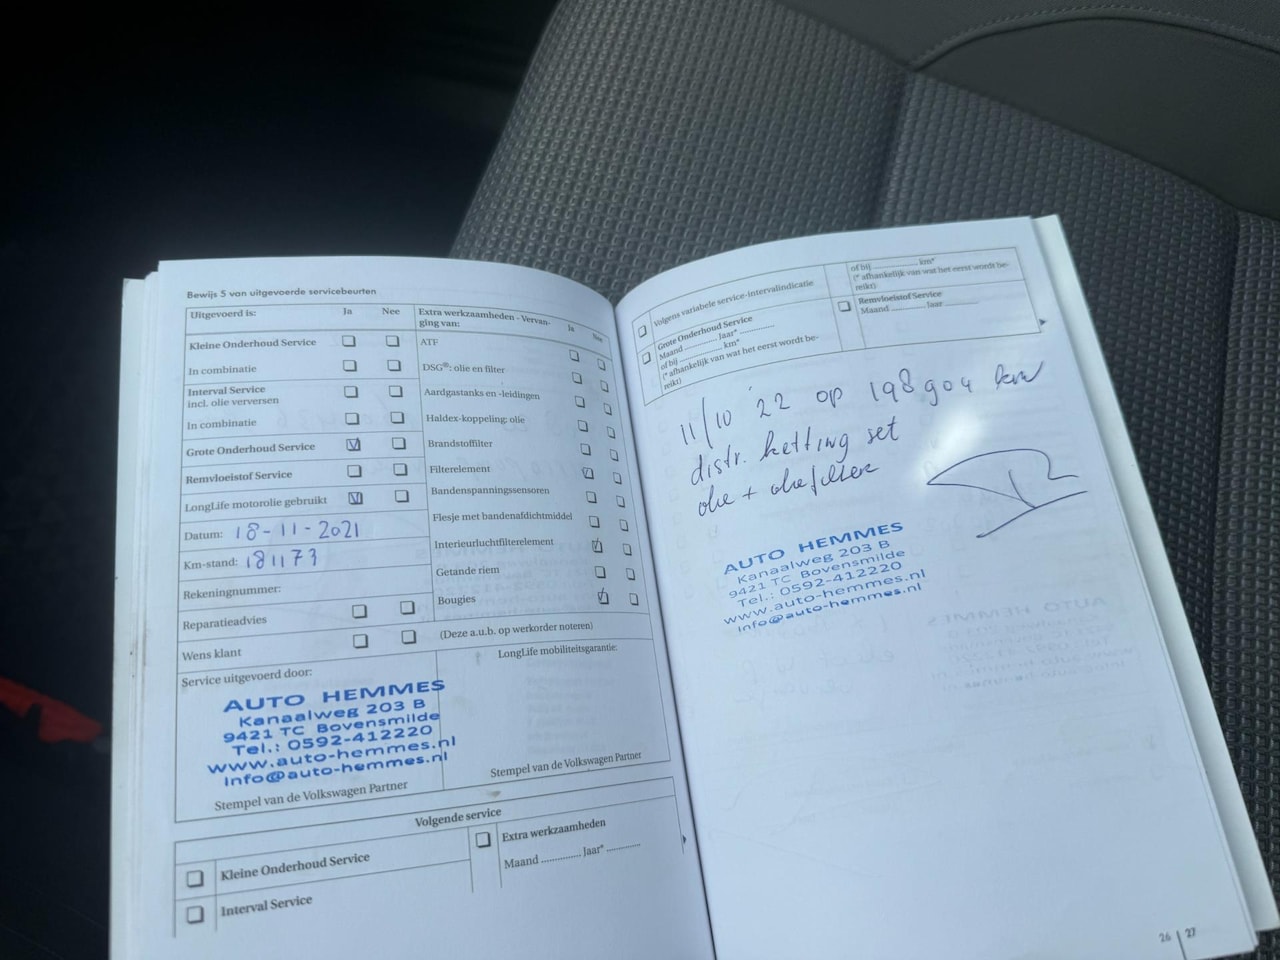 Bewijs 5 van uitgevoerde servicebeurten
Uitgevoerd is: Ja Nee
Kleine Onderhoud Service
In combinatie
Interval Service
incl. olie verversen
In combinatie
Grote Onderhoud Service
Remvloeistof Service
LongLife motorolie gebruikt
Datum: 18-11-2021
Km-stand: 181173
Rekeningnummer:
Reparatieadvies
Wens klant
Extra werkzaamheden - Vervan-
ging van: Ja Nee
ATF
DSG®: olie en filter
Aardgastanks en -leidingen
Haldex-koppeling: olie
Brandstoffilter
Filterelement
Bandenspanningssensoren
Flesje met bandenafdichtmiddel
Interieurluchtfilterelement
Getande riem
Bougies
(Deze a.u.b. op werkorder noteren)
Service uitgevoerd door:
AUTO HEMMES
Kanaalweg 203 B
9421 TC Bovensmilde
Tel.: 0592-412220
www.auto-hemmes.nl
info@auto-hemmes.nl
Stempel van de Volkswagen Partner
LongLife mobiliteitsgarantie:
Stempel van de Volkswagen Partner
Volgende service
Kleine Onderhoud Service
Interval Service
Extra werkzaamheden
Maand .............. Jaar* ............
Volgens variabele service-intervalindicatie
Grote Onderhoud Service
Maand .............. Jaar* ............
of bij .............. km*
(* afhankelijk van wat het eerst wordt be-
reikt)
of bij .............. km*
(* afhankelijk van wat het eerst wordt be-
reikt)
Remvloeistof Service
Maand ............ Jaar ............
11/10 '22 op 198904 km
distr. ketting set
olie + oliefilter
AUTO HEMMES
Kanaalweg 203 B
9421 TC Bovensmilde
Tel.: 0592-412220
www.auto-hemmes.nl
info@auto-hemmes.nl
26 27